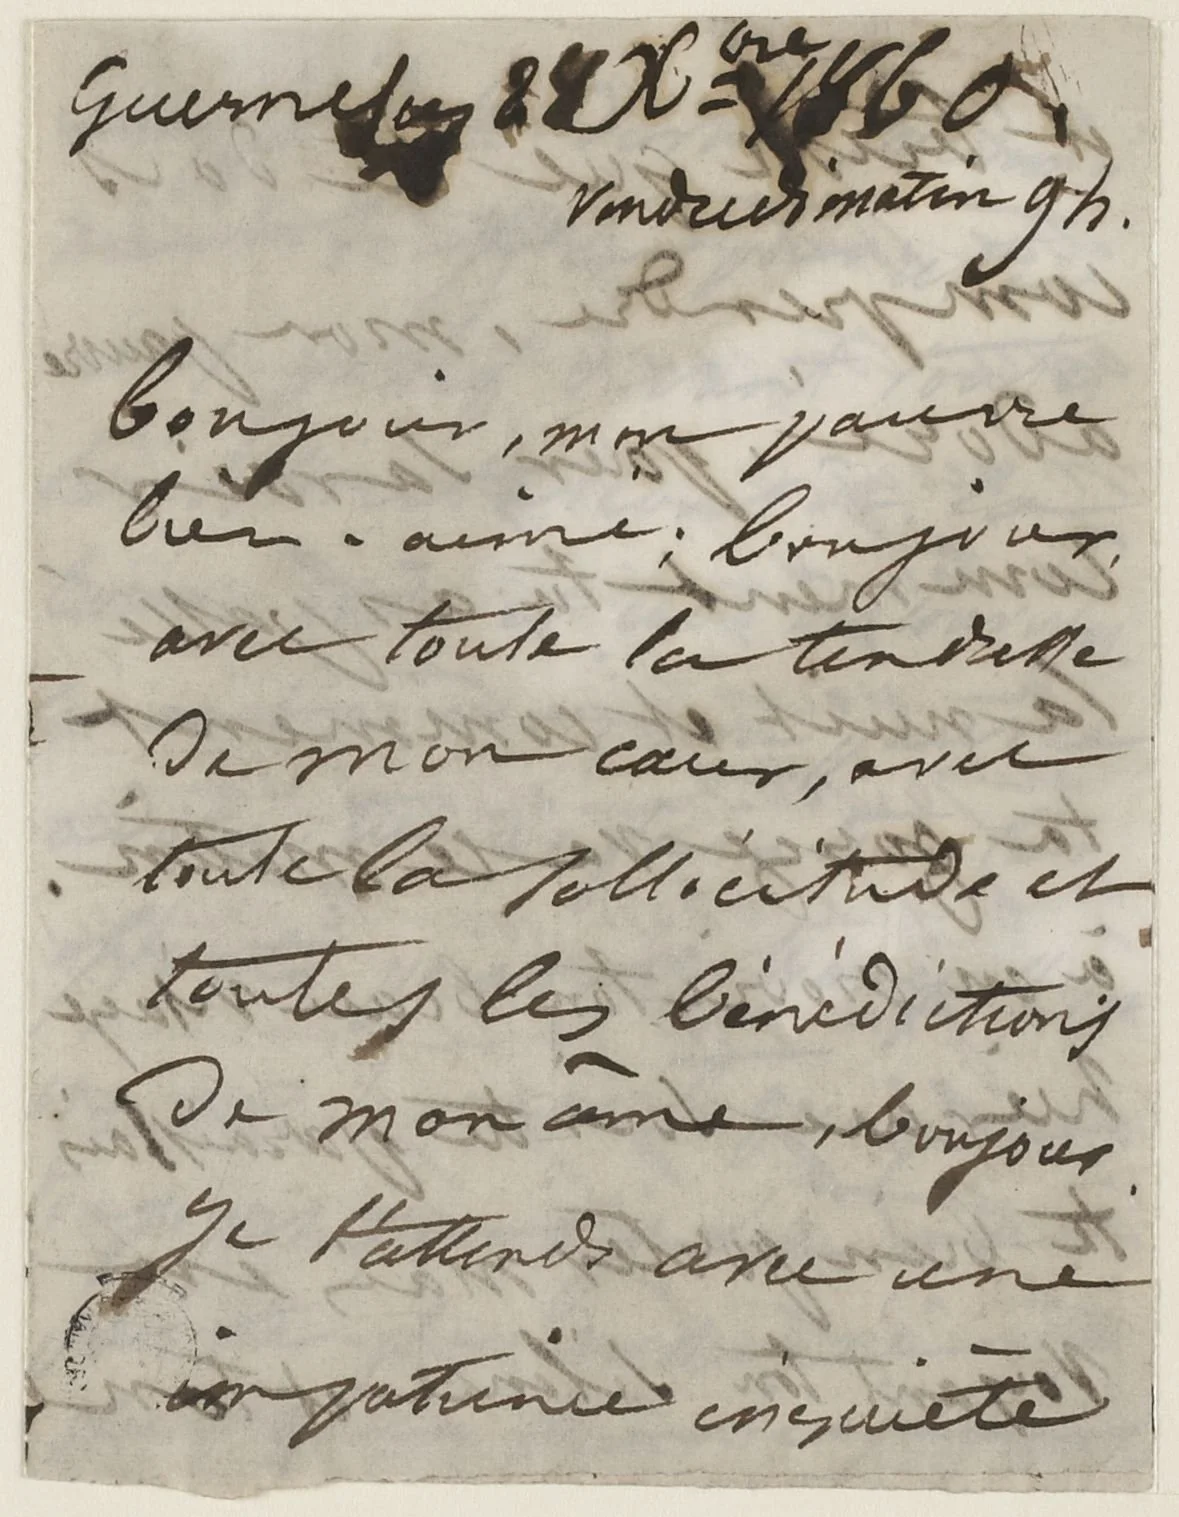 Guernesey 2 Xbre 1860.
Vendredi matin 9h.
bonjour, mon pauvre
bien-aimé; bonjour,
avec toute la tendresse
de mon cœur, avec
toute la sollicitude et
toutes les bénédictions
de mon âme, bonjour.
Je t'attends avec une
impatience inquiète